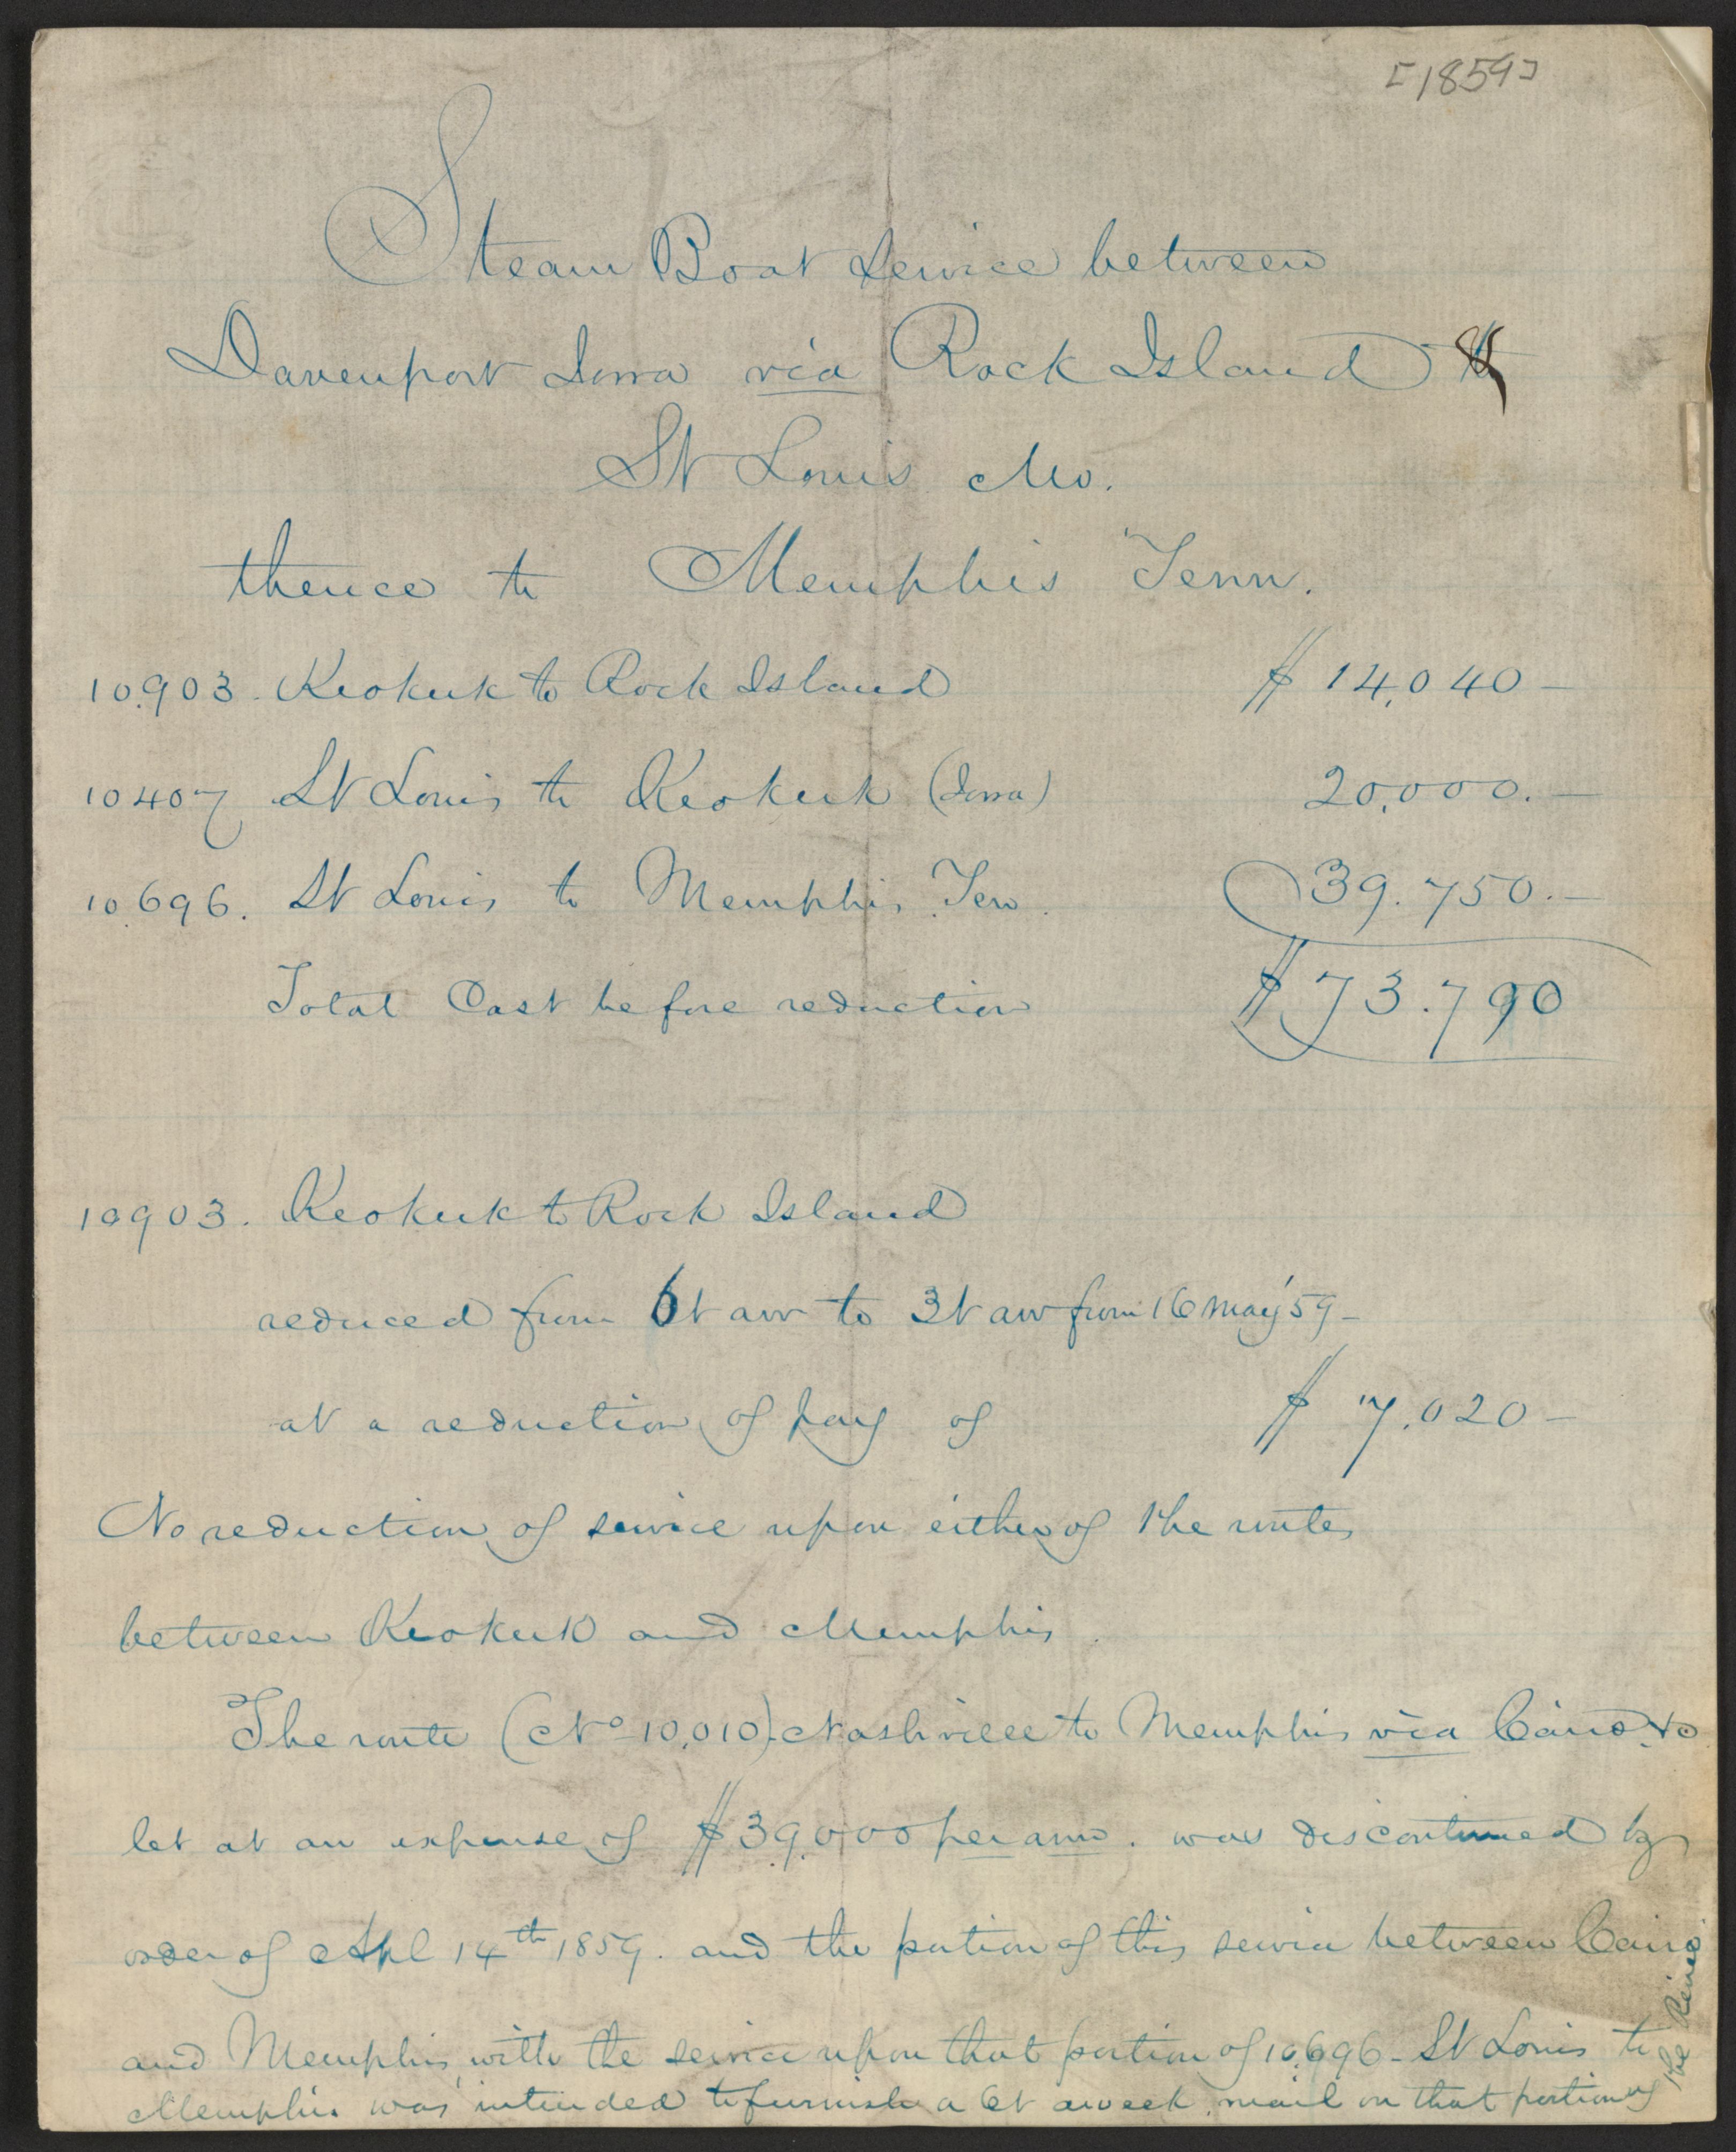 [1859]
Steam Boat Service between
Davenport Iowa via Rock Island &
St Louis Mo.
thence to Memphis Tenn.
10.903. Keokuk to Rock Island $14,040 –
10407 St Louis to Keokuk (Iowa) 20,000. –
10.696. St Louis to Memphis Ten. 39.750. –
Total Cost before reduction $73.790
10903. Keokuk to Rock Island
reduced from 6t aw to 3t aw from 16 May '59 –
at a reduction of pay of $7.020 –
No reduction of service upon either of the routes
between Keokuk and Memphis.
The route (No 10,010) Nashville to Memphis via Cairo &c
let at an expense of $39,000 per ann. was discontinued by
order of Apl 14th 1859. and the portion of this service between Cairo
and Memphis, with the service upon that portion of 10,696 – St Louis to
Memphis was intended to furnish a 6t a week mail on that portion of
the River